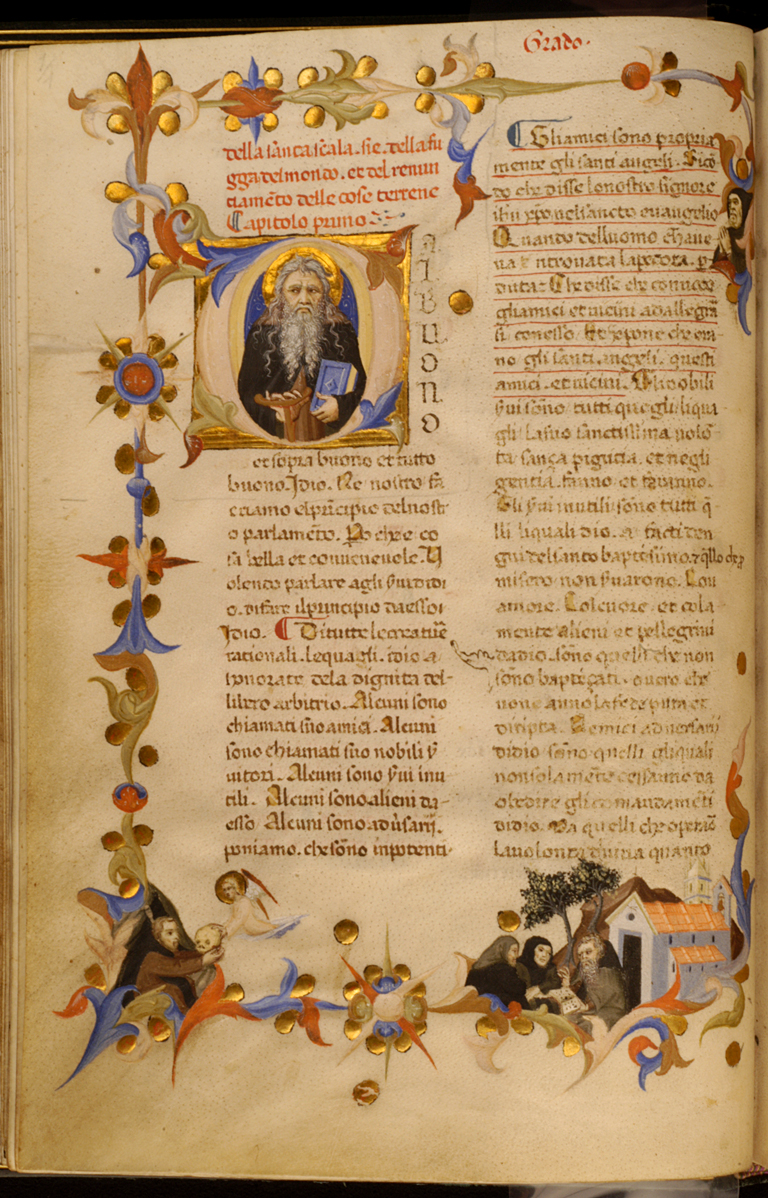 Grado.
della sancta scala. sie. della fu
gga del mondo. et del renun
ciamēto delle cose terrene
Capitolo primo
AL BUONO
et sopra buono et tutto
buono. Idio. Ne nostro fa
cciamo elprīcipio delnostr
o parlamēto. Po che e co
sa bella et convenevole. V
olendo parlare agli
o. di fare ilprincipio da essoi
Idio. Di tutte le creatuē
rationali. lequagli. idio a
honorate dela dignita del
libero arbitrio. Alcuni sono
chiamati suo amici. Alcuni
sono chiamati suo nobili
vitori. Alcuni sono inu
tili. Alcuni sono alieni da
esso Alcuni sono
poniamo. che sono inpotenti.
Gli amici sono propria
mente gli santi angeli. Sico
do che disse lo nostro signore
ihu xpo nel sancto evangelio
Quando delluomo ch ave
va ritrovata la pecora. p
duta. Che disse che convoco
gliamici et vicini ad allegrar
si con esso. che era
no gli santi angeli. questi
amici. et vicini. nobili
sono tutti quegli liqua
gli la suo sanctissima volō
ta sança pigricia. et negli
gentia. fanno et
Gli inutili sono tutti q
lli liquali dio. a facti den
gni del santo baptesimo.
misero non servarono. Con
amore. Col cuore. et cola
mente alieni et pellegrini
da dio. sono quelli che non
sono bapteçati. overo che
none anno la fede pura et
diricta. Nemici adversarij
didio sono quelli gliquali
non sola mēte cessarono da
obedire gli comandamēti
didio. Ma quelli che operāo
la volonta divina quanto